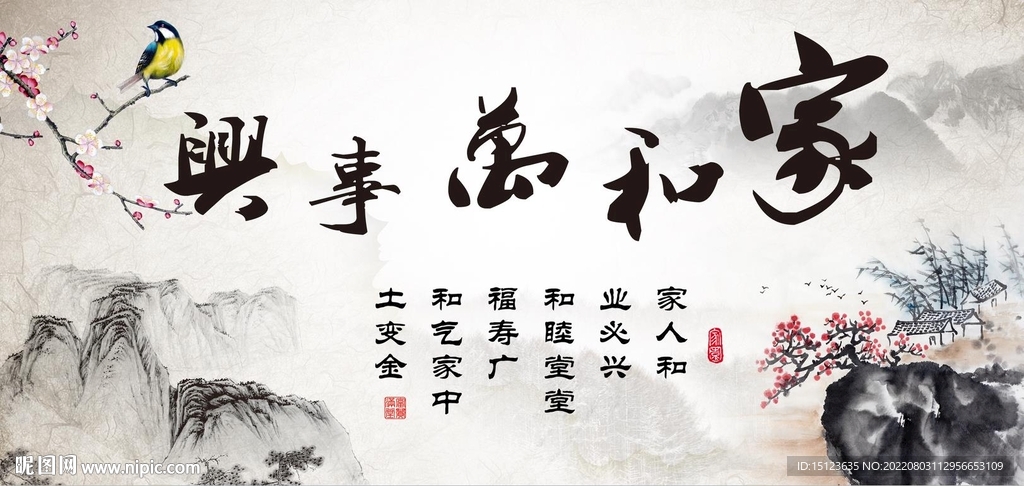 家和萬事興
家人和
业必兴
和睦堂堂
福寿广
和气家中
土变金
昵图网 www.nipic.com
ID:15123635 NO:20220803112956653109